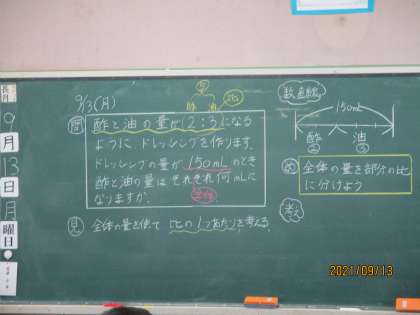 9/13(月)
酢 油
比
問 酢と油の量が2:3になる
ように、ドレッシングを作ります。
ドレッシングの量が150mLのとき
酢と油の量はそれぞれ何mLに
なりますか。
全体
見 全体の量を使って比の1つあたりを考える。
数直線
150mL
酢 油
② ③
め 全体の量を部分の比
に分けよう
考え
9
月
13
日
月
曜日
2021/09/13